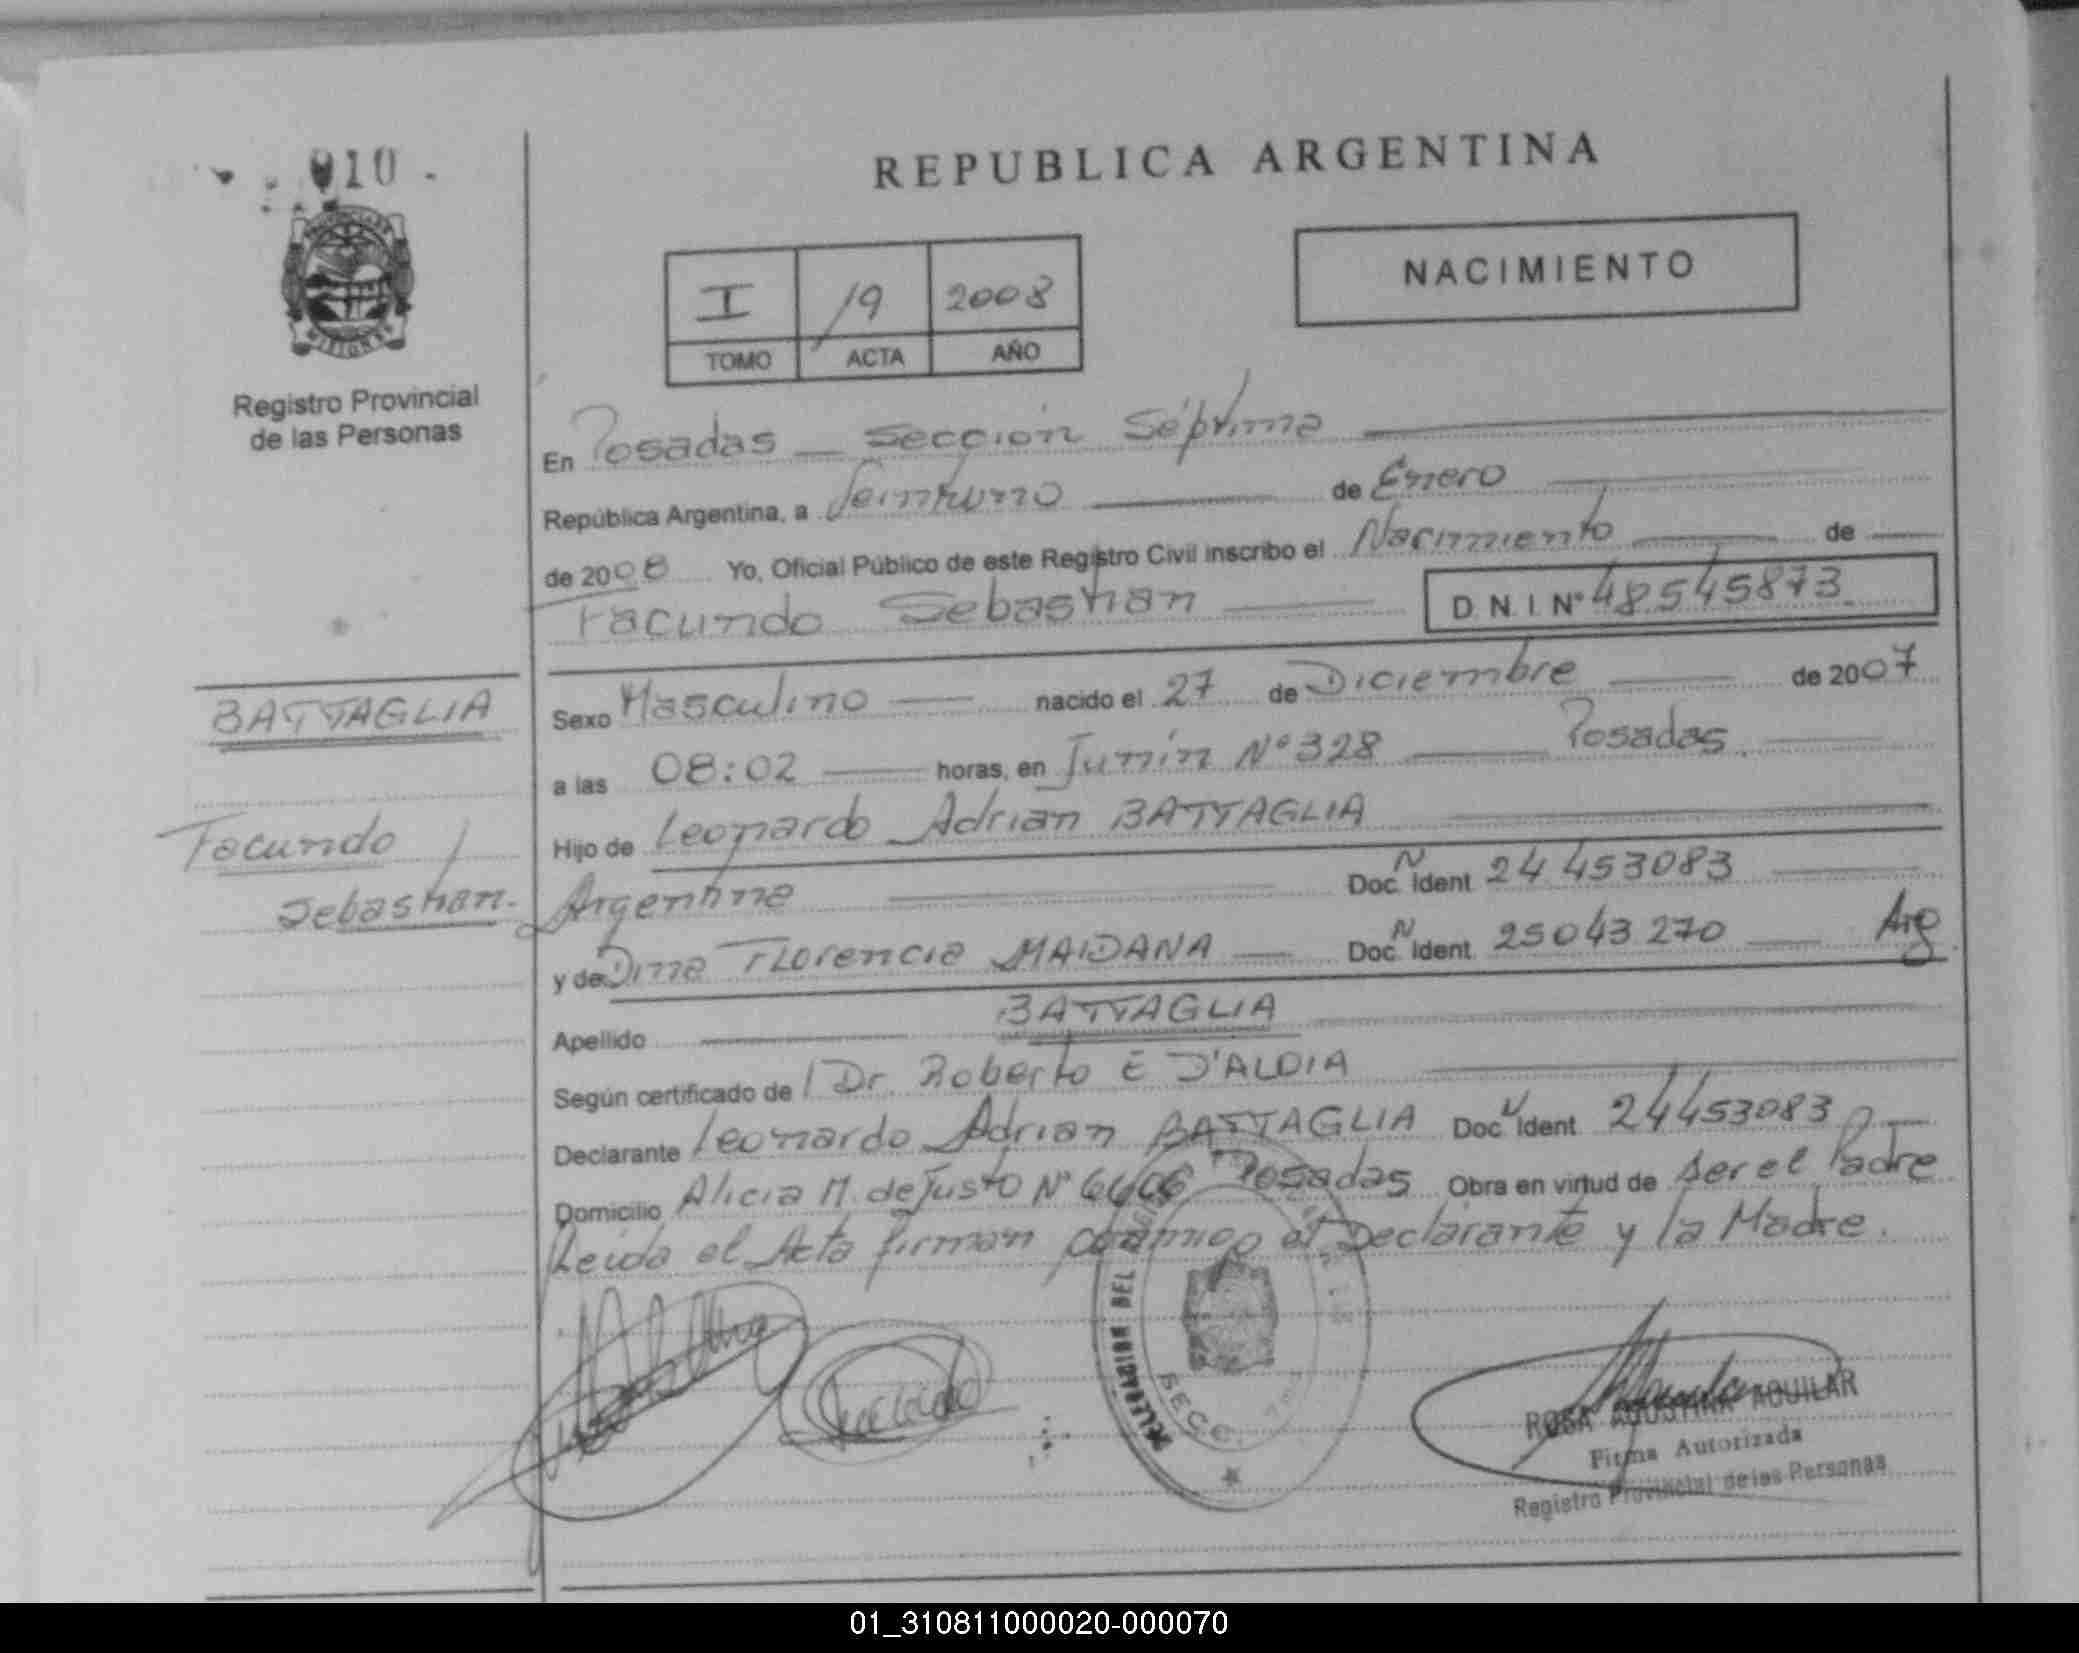 010
MISIONES
Registro Provincial
de las Personas
REPUBLICA ARGENTINA
I 19 2008
TOMO ACTA AÑO
NACIMIENTO
En Posadas Sección Séptima
República Argentina, a Veintiuno de Enero
de 2008 Yo, Oficial Público de este Registro Civil inscribo el Nacimiento de
Facundo Sebastian D.N.I Nº 48545873
BATTAGLIA
Facundo
Sebastian.
Sexo Masculino nacido el 27 de Diciembre de 2007
a las 08:02 horas, en Junín Nº 328 Posadas.
Hijo de Leonardo Adrian BATTAGLIA
Argentina Doc. N Ident 24 453083
y de Dina Florencia MAIDANA Doc. N Ident. 25043 270 Arg
Apellido BATTAGLIA
Según certificado de Dr. Roberto E D'ALDIA
Declarante Leonardo Adrian BATTAGLIA Doc. N Ident 24453083
Domicilio Alicia M. de Justo Nº Posadas Obra en virtud de ser el Padre
Leída el Acta firman conmigo el Declarante y la Madre.
DELEGACION DEL
SECC. 7
ROSA AGUSTINA AGUILAR
Firma Autorizada
Registro Provincial de las Personas
01_310811000020-000070